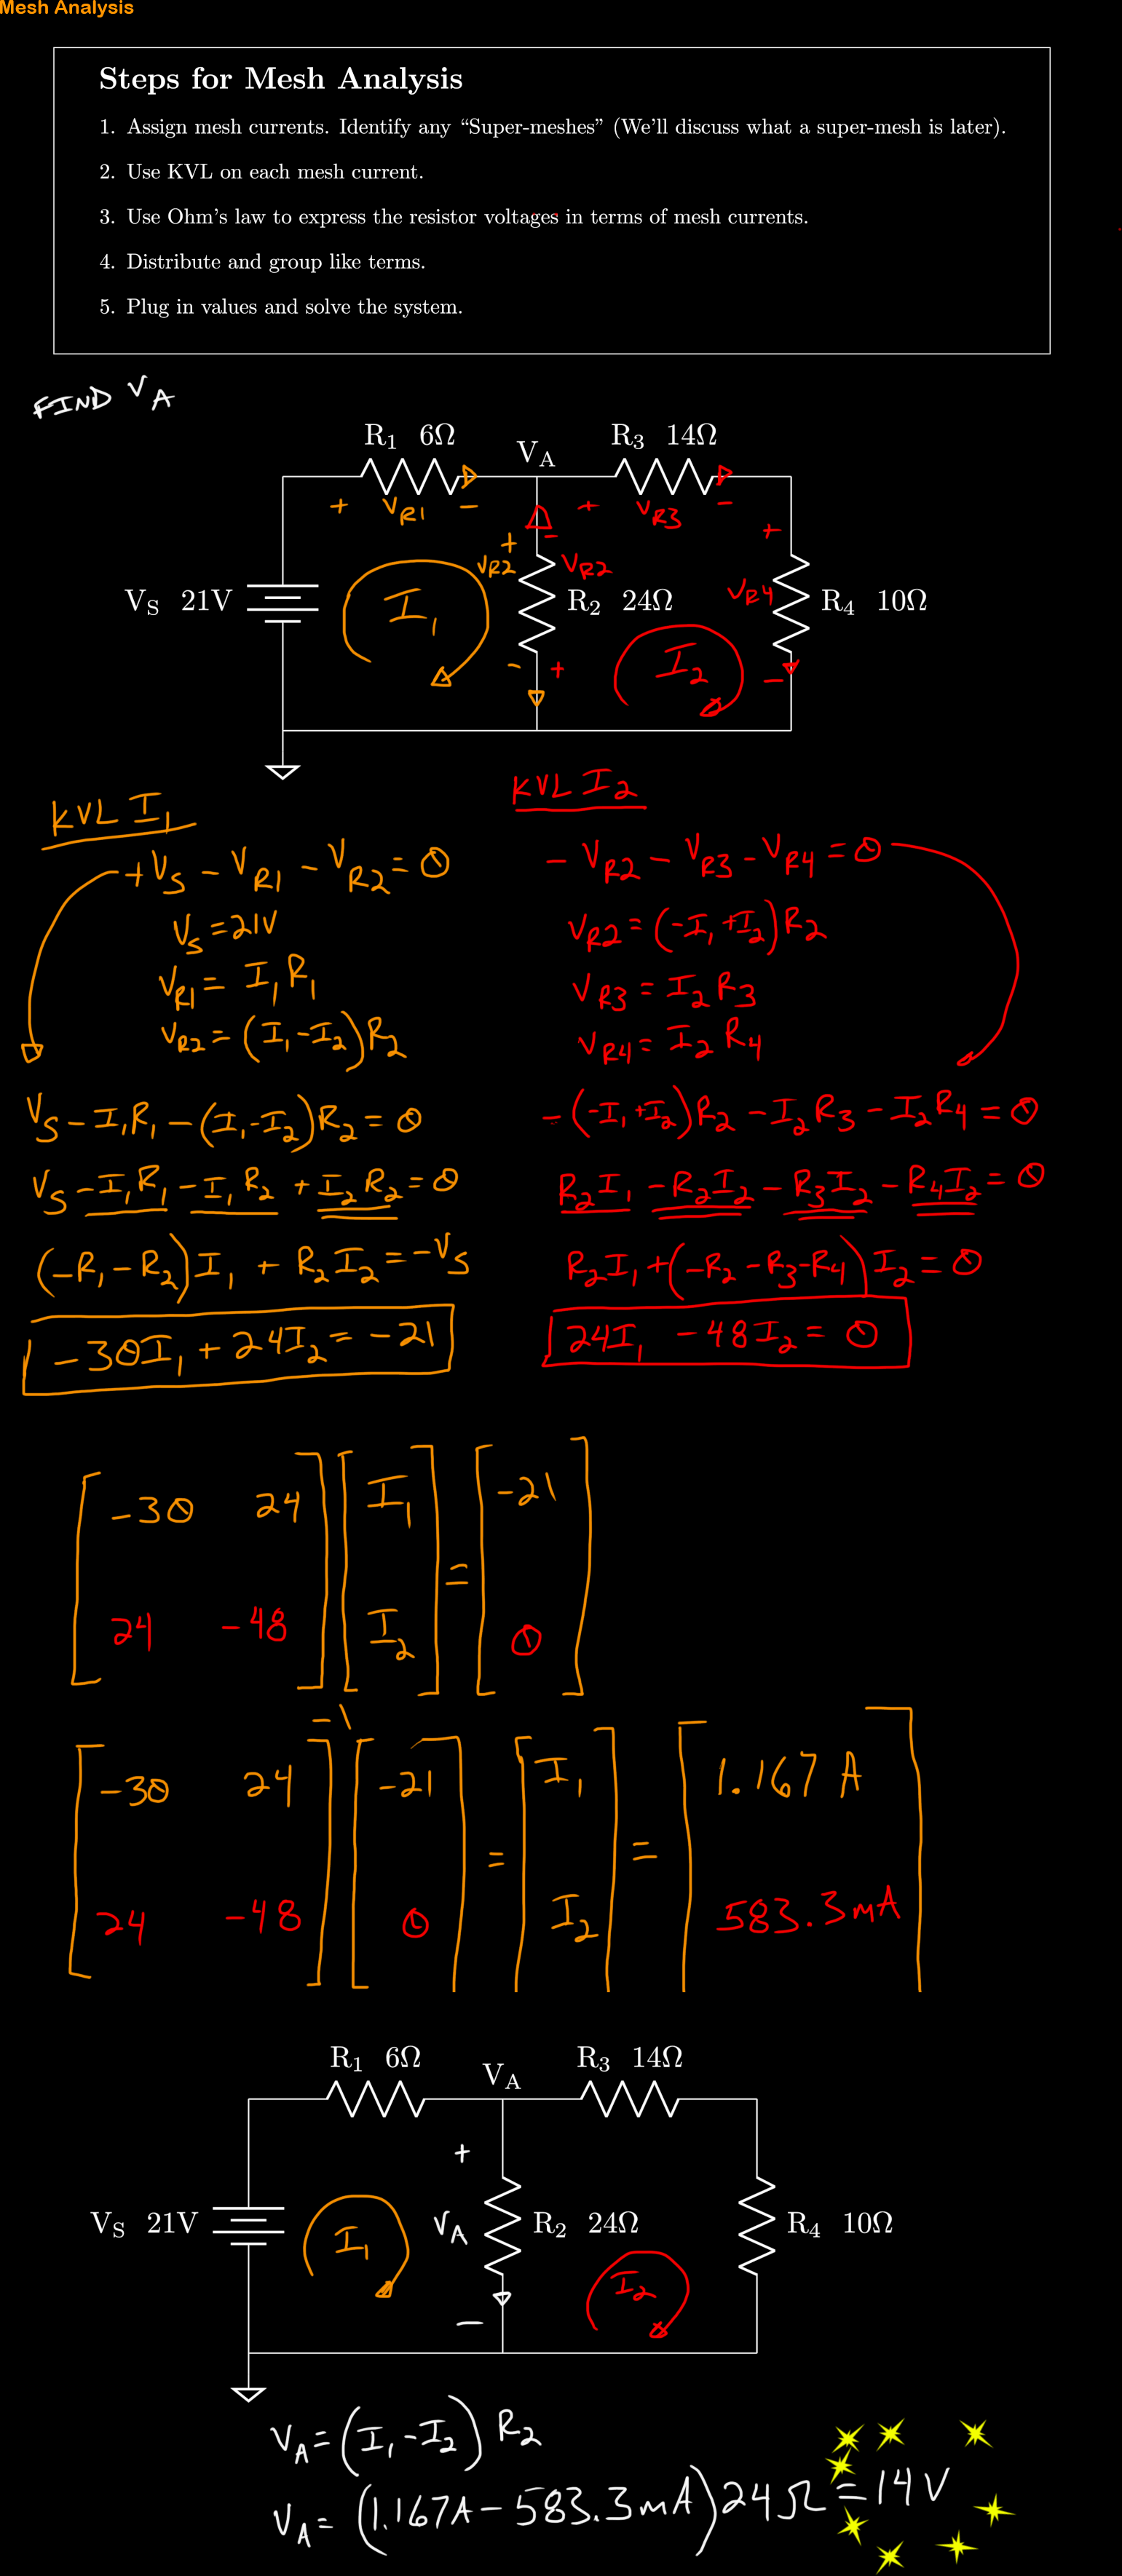 Mesh Analysis
Steps for Mesh Analysis
1. Assign mesh currents. Identify any “Super-meshes” (We’ll discuss what a super-mesh is later).
2. Use KVL on each mesh current.
3. Use Ohm’s law to express the resistor voltages in terms of mesh currents.
4. Distribute and group like terms.
5. Plug in values and solve the system.
FIND V_A
R₁ 6Ω
V_A
R₃ 14Ω
+ V_R1 −
+ V_R3 −
+ V_R2 −
− V_R2 +
V_S 21V
I₁
R₂ 24Ω
+ V_R4 −
R₄ 10Ω
I₂
KVL I₁
+V_S − V_R1 − V_R2 = 0
V_S = 21V
V_R1 = I₁R₁
V_R2 = (I₁−I₂)R₂
V_S − I₁R₁ − (I₁−I₂)R₂ = 0
V_S − I₁R₁ − I₁R₂ + I₂R₂ = 0
(−R₁−R₂)I₁ + R₂I₂ = −V_S
−30I₁ + 24I₂ = −21
KVL I₂
− V_R2 − V_R3 − V_R4 = 0
V_R2 = (−I₁+I₂)R₂
V_R3 = I₂R₃
V_R4 = I₂R₄
−(−I₁+I₂)R₂ − I₂R₃ − I₂R₄ = 0
R₂I₁ − R₂I₂ − R₃I₂ − R₄I₂ = 0
R₂I₁ + (−R₂−R₃−R₄)I₂ = 0
24I₁ − 48I₂ = 0
[−30 24] [I₁] = [−21]
[24 −48] [I₂] [0]
−1
[−30 24] [−21] = [I₁] = [1.167 A]
[24 −48] [0] [I₂] [583.3mA]
R₁ 6Ω
V_A
R₃ 14Ω
+
V_S 21V
I₁
V_A
R₂ 24Ω
R₄ 10Ω
I₂
−
V_A = (I₁−I₂) R₂
V_A = (1.167A − 583.3mA) 24Ω = 14V